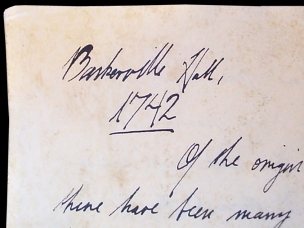 Baskerville Hall,
1742
Of the origin
there have been many